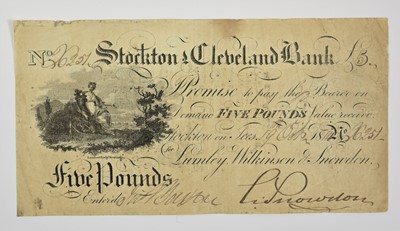 No Stockton & Cleveland Bank £5.
I Promise to pay the Bearer on
Demand FIVE POUNDS Value receiv'd
Stockton on Tees
For Lumley, Wilkinson & Snowdon.
Five Pounds
Enter'd Snowdon